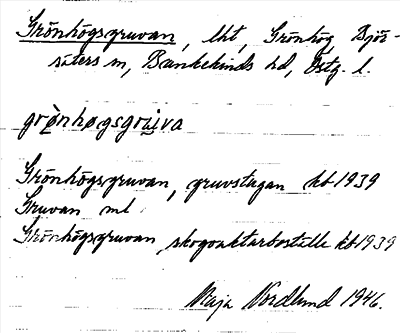 Grönhögsgruvan, lht, Grönhög Björ-
säters sn, Bankekinds hd, Östg. l.
grònhøgsgrùva
Grönhögsgruvan, gruvstugan kb 1939
Gruvan ml
Grönhögsgruvan, skogvaktarboställe kb 1939
Maja Nordlund 1946.